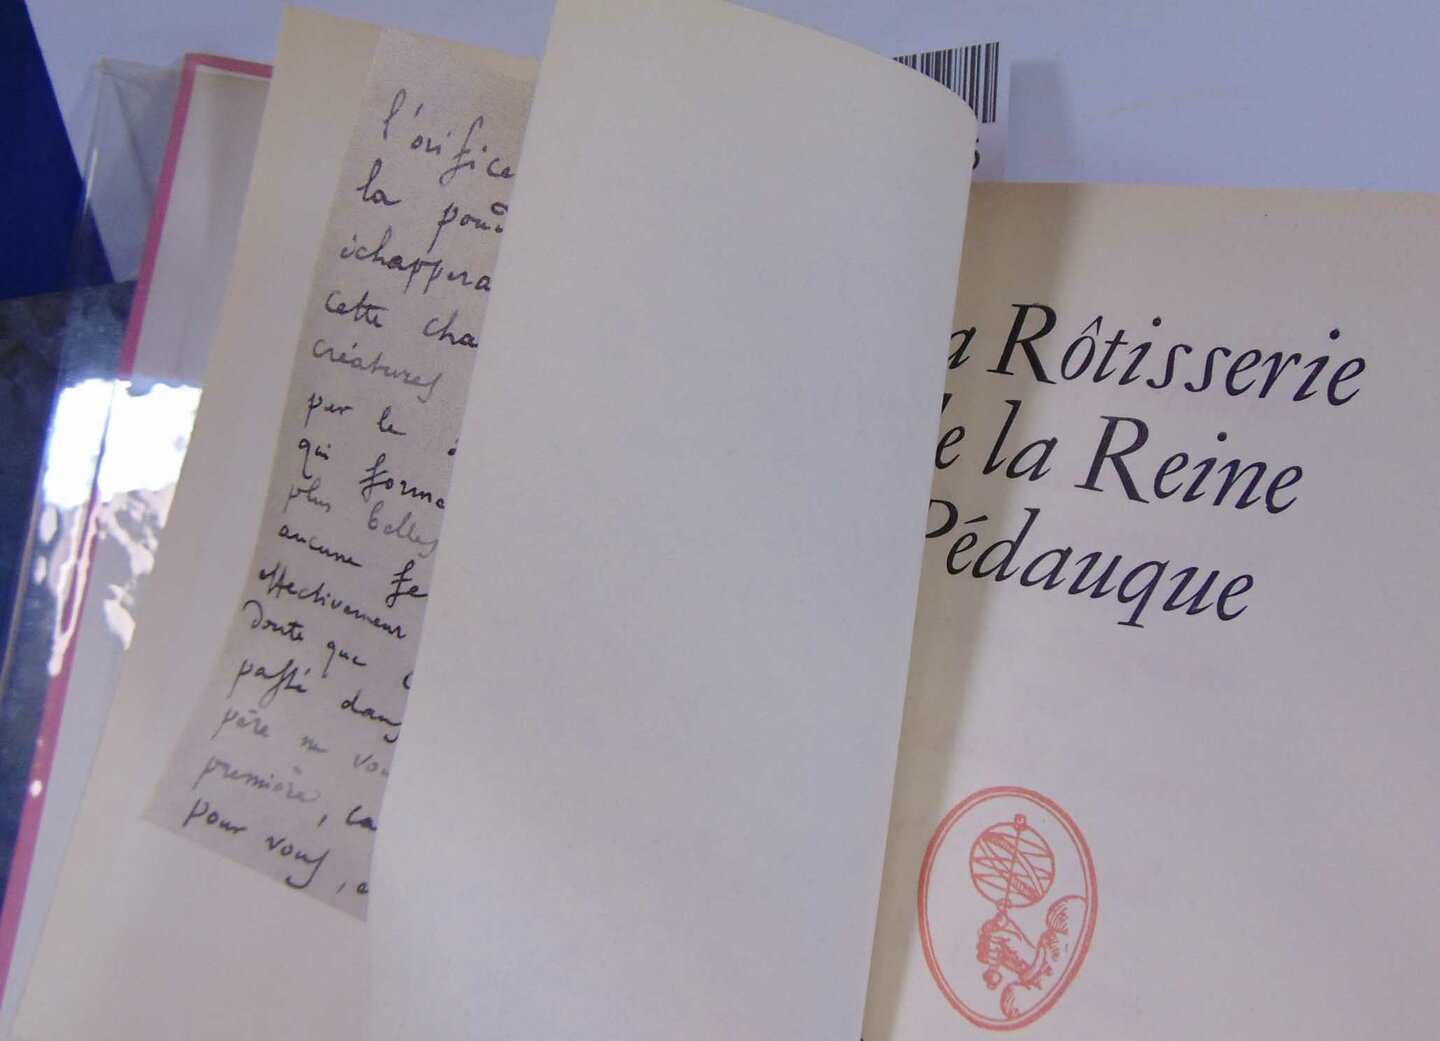 l'orifice
la poud
échappera
cette cha
créatures
par le
qui forme
plus belles
aucune fe
effectivement
Doute que c
passé dans
père ne vou
première, ca
pour vous, e
a Rôtisserie
de la Reine
Pédauque